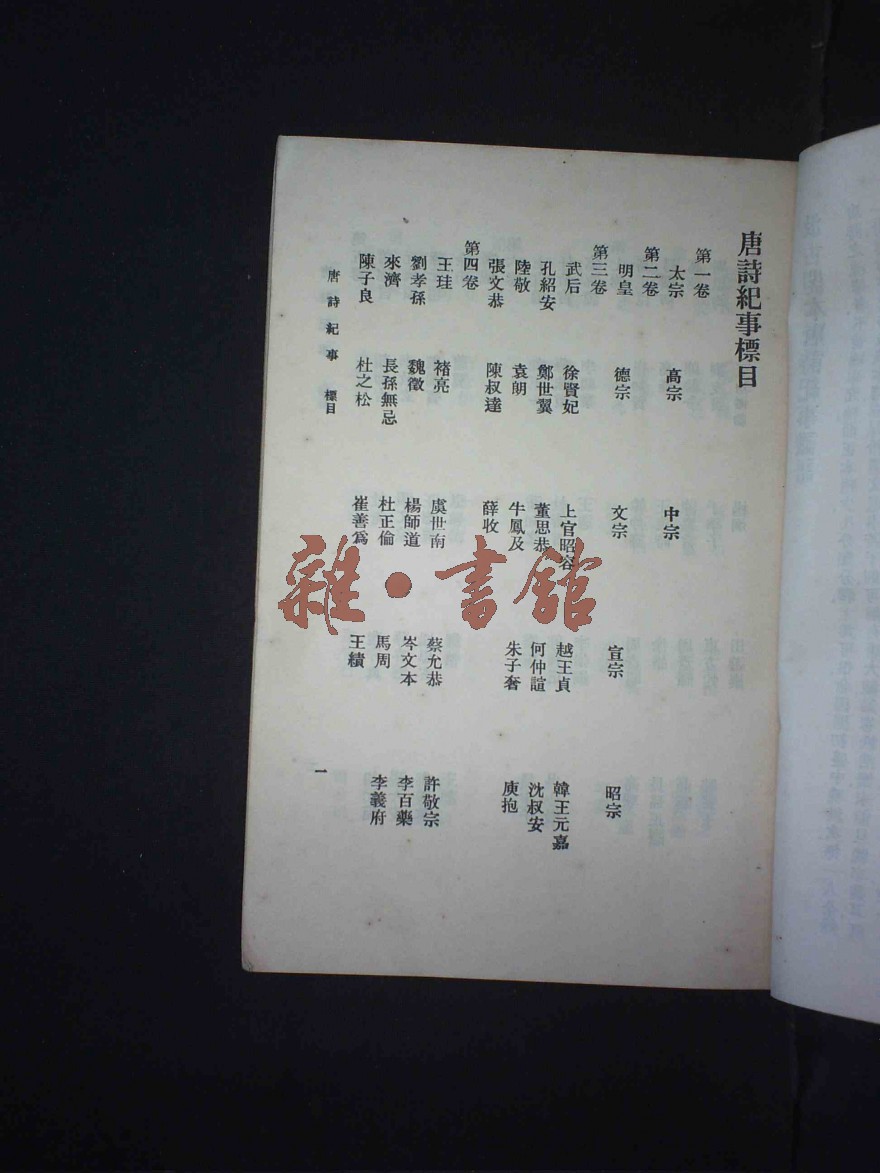 唐詩紀事標目
第一卷
太宗 高宗 中宗
第二卷
明皇 德宗 文宗 宣宗 昭宗
第三卷
武后 徐賢妃 上官昭容 越王貞 韓王元嘉
孔紹安 鄭世翼 董思恭 何仲諠 沈叔安
陸敬 袁朗 牛鳳及 朱子奢 庾抱
張文恭 陳叔達 薛收
第四卷
王珪 褚亮 虞世南 蔡允恭 許敬宗
劉孝孫 魏徵 楊師道 岑文本 李百藥
來濟 長孫無忌 杜正倫 馬周 李義府
陳子良 杜之松 崔善爲 王績
唐詩紀事 標目
一
雜·書館